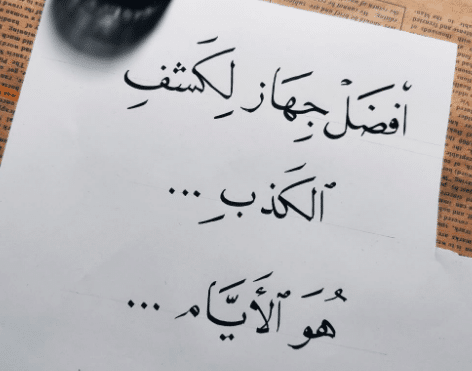 أفضَلْ جِهَاز لِكَشفِ
ٱلكَذبِ ...
هُوَ ٱلأَيَّام ...